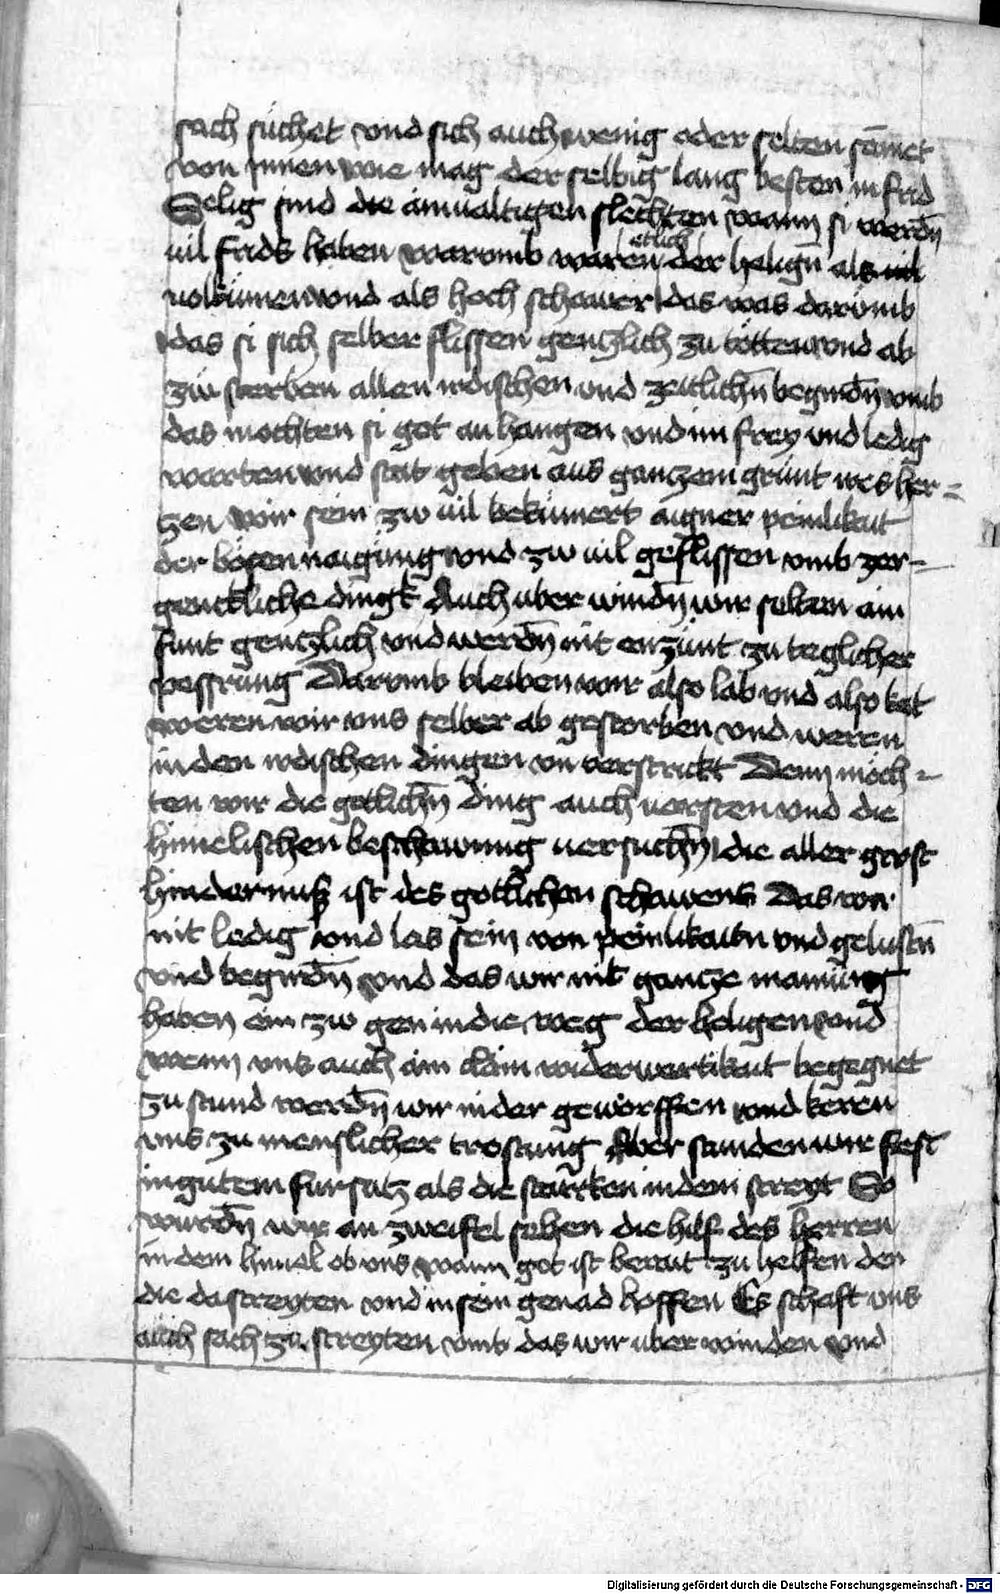 sach suchet vnd sich auch wenig oder selten samet
von Innen wie mag der selbig lang besten in frid
Selig sind die ainualtigen slechten wann si werdn̄
uil frids haben warvmb waren etlich der heilign̄ als uil
uolkumen vnd als hoch schawer das was darumb
das si sich selber flissen genczlich zu tötten vnd ab
zw sterben allen irdischen und zeitlichn̄ begirdn̄ vmb
das mochten si got an hangen vnd im frey vnd ledig
warten vnd stat geben aus ganczem grunt irs her=
zen Wir sein zw uil bekumert aigner peinlikait
der bösen naigung vnd zw uil geflissen vmb zer=
gencklich ding Auch uber windn̄ wir selten ain
sunt genczlich vnd werdn̄ nit enzunt zu teglicher
pessrung Darvmb bleiben wir also lab vnd also kalt
weren wir vns selber ab gestorben vnd weren
in den irdischen dingen vn verstrickt Denn möch=
ten wir die gotlichn̄ ding auch uersten vnd die
himelischen beschawung uersuchn̄ die aller gröst
hindernuß ist des gotlichen schawens Das wir
nit ledig vnd los sein von peinlikaitn vnd gelustn̄
vnd begirdn̄ vnd das wir nit gancze mainung
haben ein zw gen in die weg der heligen vnd
wenn vns auch ain clain widerwertikait begegnet
zu stund werdn̄ wir nider geworffen vnd keren
vns zu menslicher trostung Aber stunden wir fest
in gutem fursatz als die starcken in dem streyt So
wurdn̄ wir an zweifel sehen die hilf des herren
in dem himel ob vns wann got ist berait zu helfen den
die da streyten vnd in sein genad hoffen Er schaft vns
auch sach zu streyten vmb das wir uber winden vnd
Digitalisierung gefördert durch die Deutsche Forschungsgemeinschaft - DFG